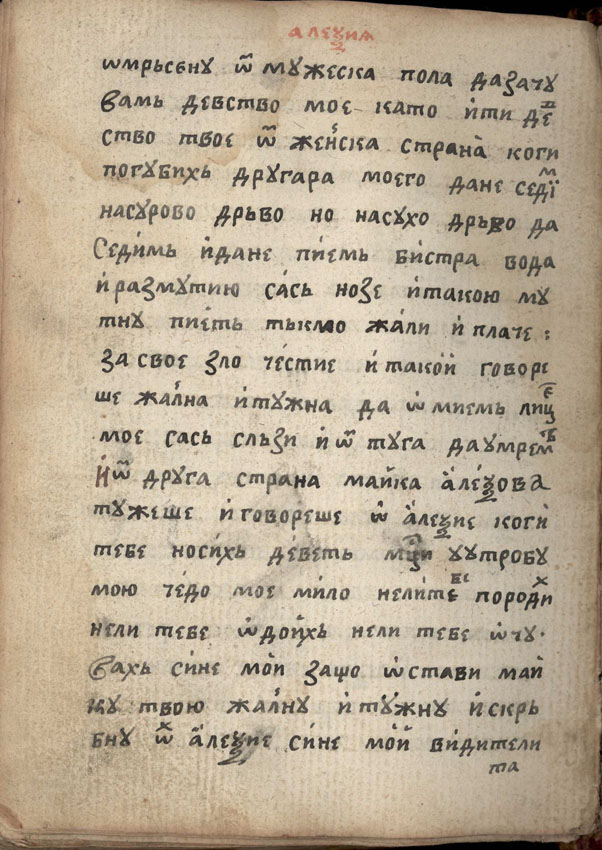 алеѯиѧ
ѡмрьсену ѿ мꙋжеска пола дазачꙋ
вамь девство мое като ѝти деⷡ
ство твое ѿ женска страна коги
погꙋбихь дрꙋгара моего дане седїⷨ
насꙋрово дрьво но насꙋхо дрьво да
Седимь ѝдане пїемь бистра вода
ѝразмꙋтию сась нозе ѝтакою мꙋ
тнꙋ пїеть тькмо жали ѝ плаче :
за свое зло честие ѝтакой говоре
ше жална ѝтꙋжна да ѡмиемь лицⷷ
мое сась сльзи ѝ ѿ тꙋга даꙋмремь
И ѿ дрꙋга страна майка а҆леѯова
тꙋжеше ѝговореше ѽ а҆леѯие когѝ
тебе носихь деветь мц҃и ꙋꙋтробꙋ
мою чедо мое мило нелитебе породиⷯ
нели тебе ѡдойхь нели тебе ѡчꙋ
вахь сине мой защо ѡстави май
кꙋ твою жалнꙋ ѝтꙋжнꙋ ѝскрь
бнꙋ ѡⷯ а҆леѯие сине мой видители
та